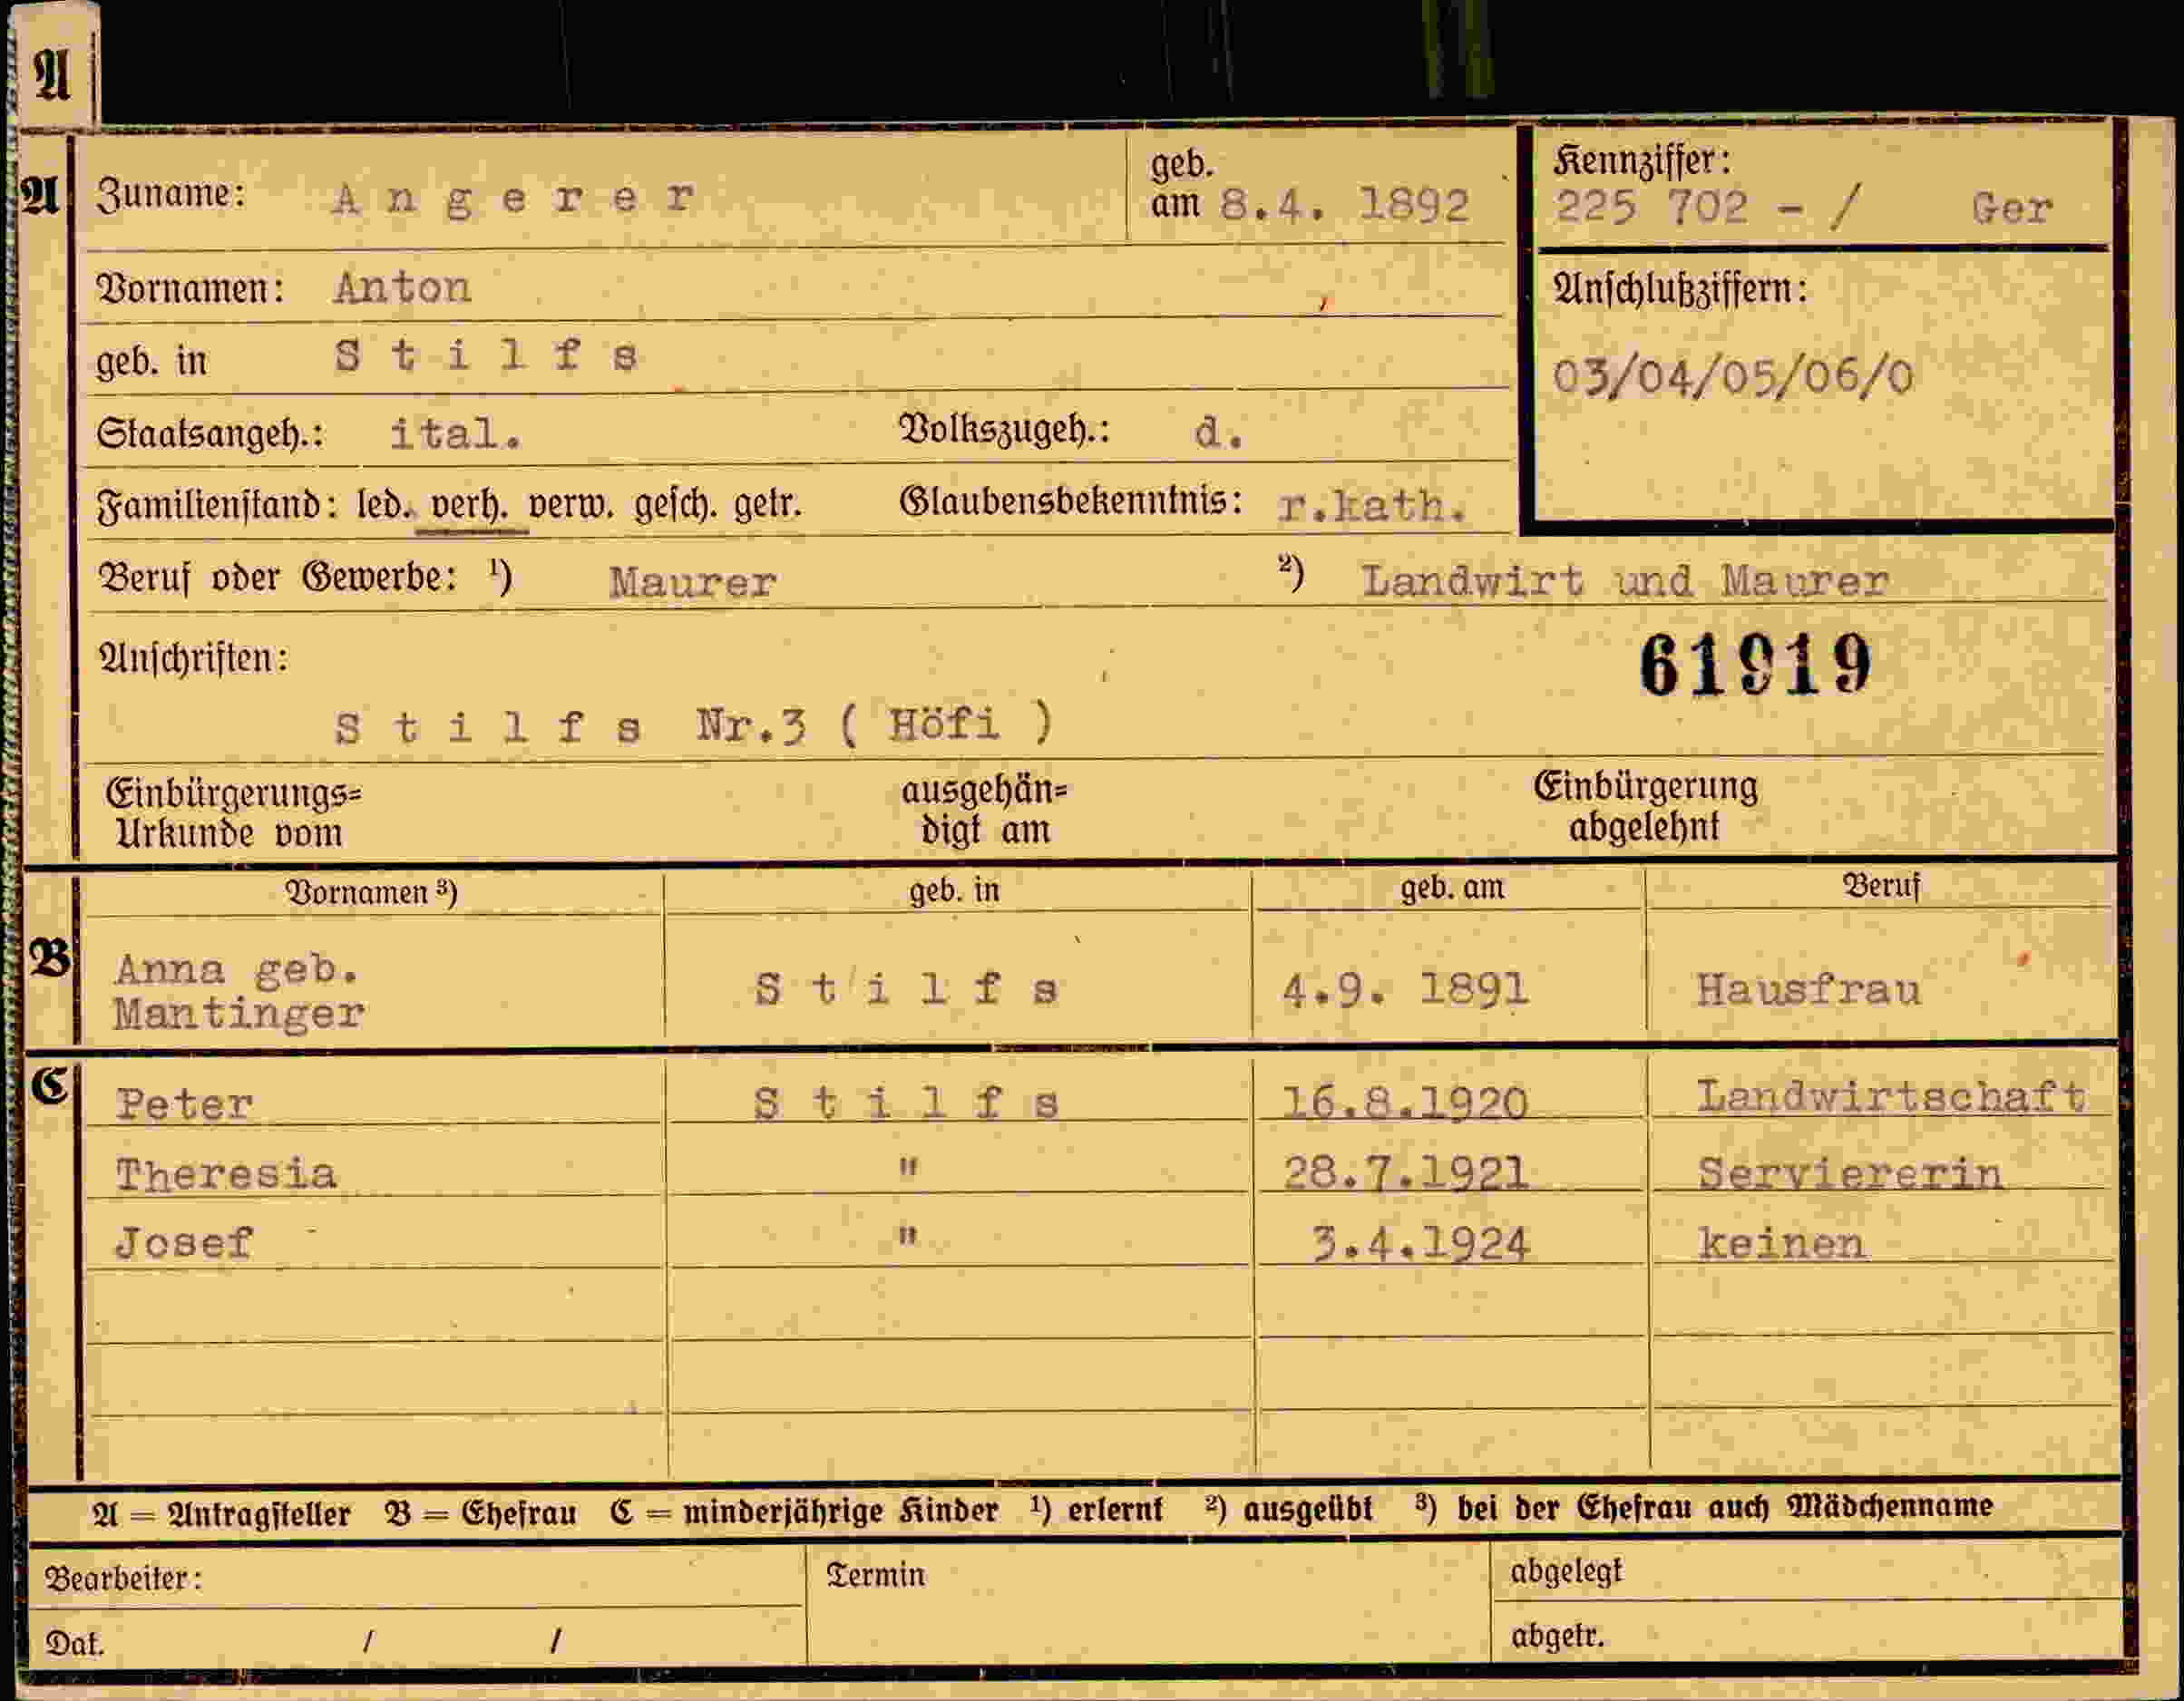 A
A Zuname: Angerer geb. am 8.4. 1892 Kennziffer: 225 702 - / Ger
Vornamen: Anton Anschlußziffern:
geb. in Stilfs 03/04/05/06/0
Staatsangeh.: ital. Volkszugeh.: d.
Familienstand: led. verh. verw. gesch. getr. Glaubensbekenntnis: r.kath.
Beruf oder Gewerbe: ¹) Maurer ²) Landwirt und Maurer
Anschriften: 61919
Stilfs Nr.3 ( Höfi )
Einbürgerungs= ausgehän= Einbürgerung
Urkunde vom digt am abgelehnt
Vornamen ³) geb. in geb. am Beruf
B Anna geb.
Mantinger Stilfs 4.9. 1891 Hausfrau
C Peter Stilfs 16.8.1920 Landwirtschaft
Theresia " 28.7.1921 Serviererin
Josef " 3.4.1924 keinen
A = Antragsteller B = Ehefrau C = minderjährige Kinder ¹) erlernt ²) ausgeübt ³) bei der Ehefrau auch Mädchenname
Bearbeiter: Termin abgelegt
Dat. / / abgetr.